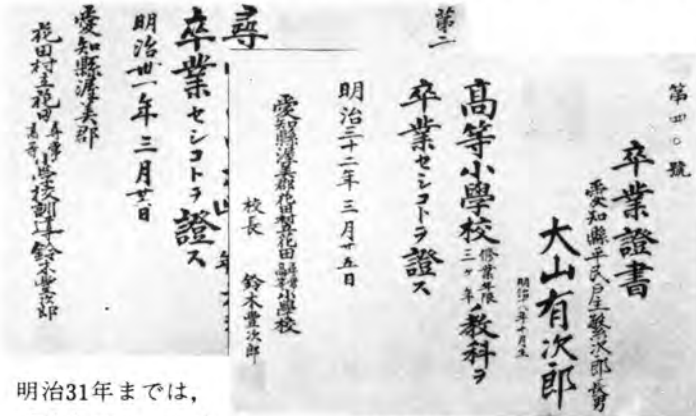 第四〇號
卒業證書
愛知縣平民戸主繁次郎長男
大山有次郎
明治 年十月生
高等小學校修業年限三ケ年ノ教科ヲ
卒業セシコトヲ證ス
明治三十二年三月廿五日
愛知縣渥美郡花田村立花田尋常高等小學校
校長 鈴木豊次郎
第二
尋
卒業セシコトヲ證ス
明治卅一年三月廿 日
愛知縣渥美郡
花田村立花田尋常高等小學校訓導鈴木豊次郎
明治31年までは,